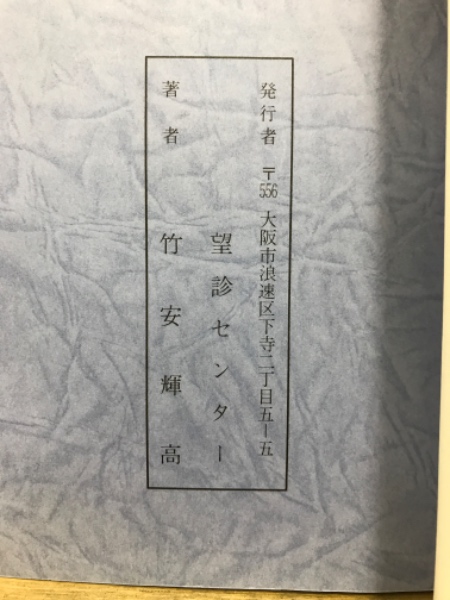 発行者 〒556 大阪市浪速区下寺二丁目五ー五
望診センター
著者 竹安輝高